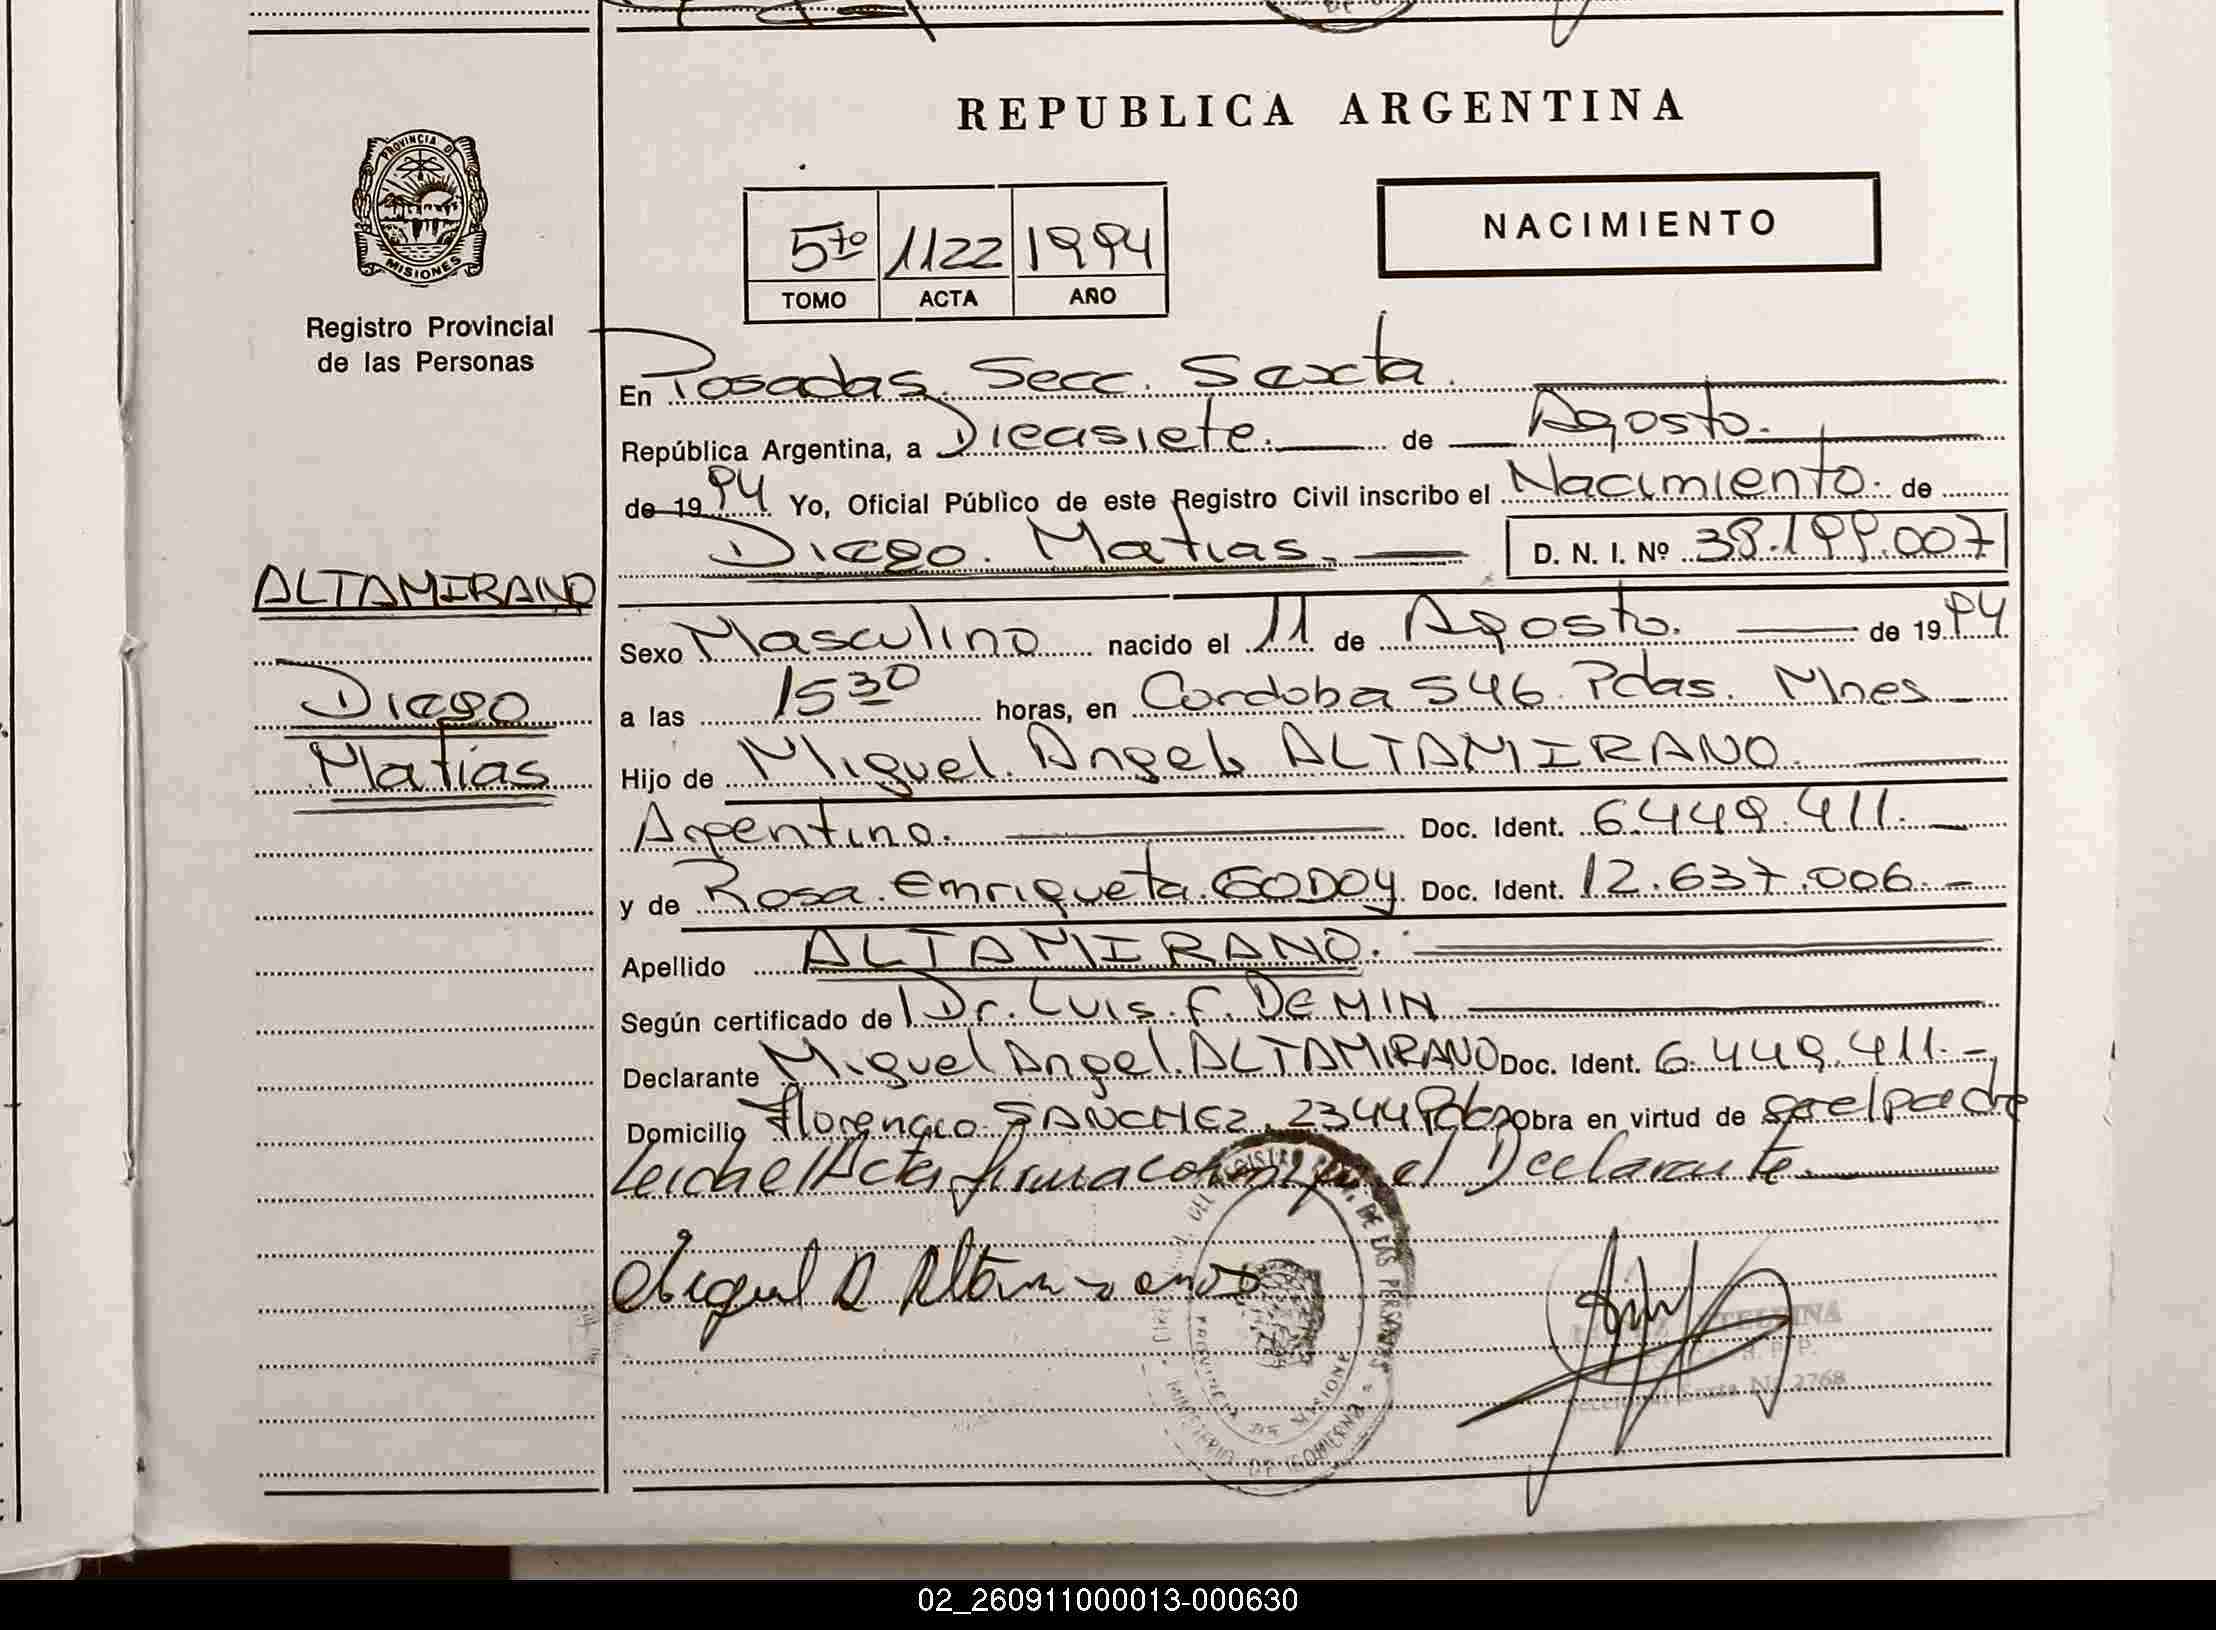 REPUBLICA ARGENTINA
PROVINCIA DE
MISIONES
Registro Provincial
de las Personas
5to 1122 1994
TOMO ACTA AÑO
NACIMIENTO
En Posadas. Secc. Sexta.
República Argentina, a Diecisiete. de Agosto.
de 19 94 Yo, Oficial Público de este Registro Civil inscribo el Nacimiento. de
Diego. Matias. D. N. I. Nº 38.199.007
ALTAMIRANO
Diego
Matias
Sexo Masculino nacido el 11 de Agosto. de 19 94
a las 15 30 horas, en Cordoba 546. Pdas. Mnes
Hijo de Miguel. Angel ALTAMIRANO.
Argentino. Doc. Ident. 6.449.411.
y de Rosa. Enriqueta. GODOY Doc. Ident. 12.637.006.
Apellido ALTAMIRANO.
Según certificado de Dr. Luis. F. DEMIN
Declarante Miguel Angel. ALTAMIRANO Doc. Ident. 6.449.411.
Domicilio Florencio SANCHEZ. 2344 Obra en virtud de ser el padre
Leida el Acta firma conmigo el Declarante.
Miguel A Altamirano
PROVINCIA DE MISIONES
MINISTERIO DE GOBIERNO
Nº 2768
02_260911000013-000630